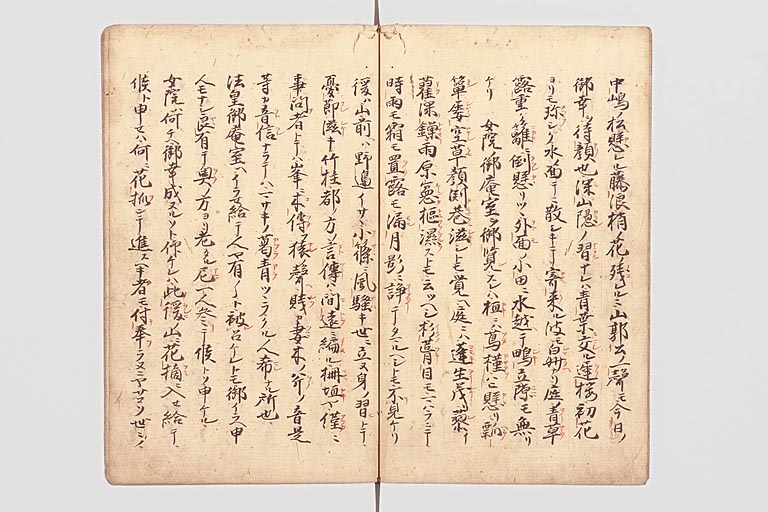 中嶋ノ松懸レル藤浪梢ノ花残ルニ山郭公ノ一聲モ今日ノ
御幸ヲ待顔也深山隠ノ習ナレハ青葉交ル遅桜初花
ヨリモ珎シク水面ニ散シキテ寄来ル波モ白妙ナリ庭ノ青草
露重ク籬ニ倒懸ツヽ外面ノ小田ニ水越テ鴫立隙モ無リ
ケリ 女院御庵室ヲ御覧スレハ垣ニハ蔦槿ハヒ懸リ瓢
箪屡空草顔淵巷滋シトモ覚ヘ庭ニハ蓬生茂リ藜
藋深鏁雨原憲樞湿ストモ云ツヘシ杉ノ葺目モマハラニテ
時雨モ霜モ置露モ漏月影ニ諍テタマルヘシトモ不見ケリ
後ハ山前ハ野邊イサヽ小篠ニ風騒キ世ニ立ヌ身ノ習トテ
憂節滋キ竹柱都ノ方ノ言傳ハ間遠ニ編ル柵垣ヤ僅ニ
事問者トテハ峯ニ木傳フ猿ノ聲賎カ妻木ノ斧ノ音是
等カ音信ナラテハマサキノ葛青ツヽラクル人希ナル所也
法皇御庵室ニイラセ給テ人ヤ有ノト被召ケレトモ御イラヘ申
人モナシ良有テ奥ノ方ヨリ老タル尼一人参テ候トソ申ケル
女院ハ何チヘ御幸成ヌルソト仰ケレハ此後ノ山ヘ花摘ニ入セ給テ
候ト申セハ何ニ花摘テ進スル者モ付奉ラヌニヤサコソ世ニ